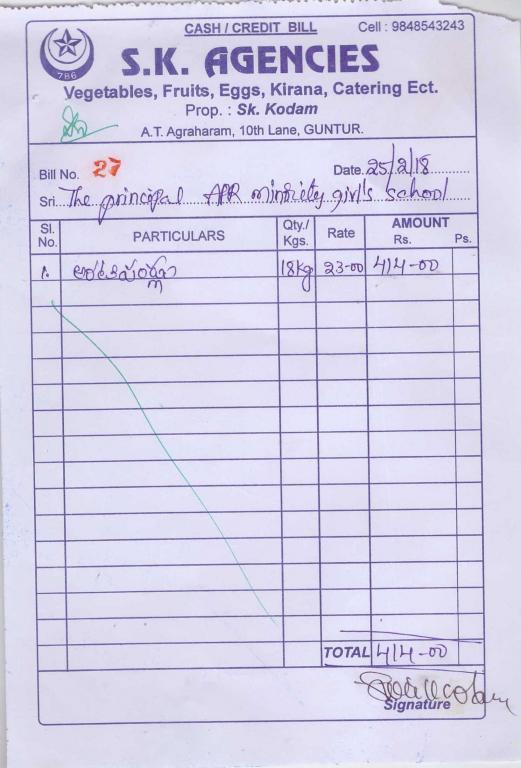 CASH / CREDIT BILL
Cell : 9848543243
786
S.K. AGENCIES
Vegetables, Fruits, Eggs, Kirana, Catering Ect.
Prop. : Sk. Kodam
A.T. Agraharam, 10th Lane, GUNTUR.
Bill No. 27
Date. 25/2/18
Sri. The principal APR minority girl's school
Sl. No. PARTICULARS Qty./ Kgs. Rate AMOUNT Rs. Ps.
1. 18kg 23-00 414-00
TOTAL 414-00
Signature